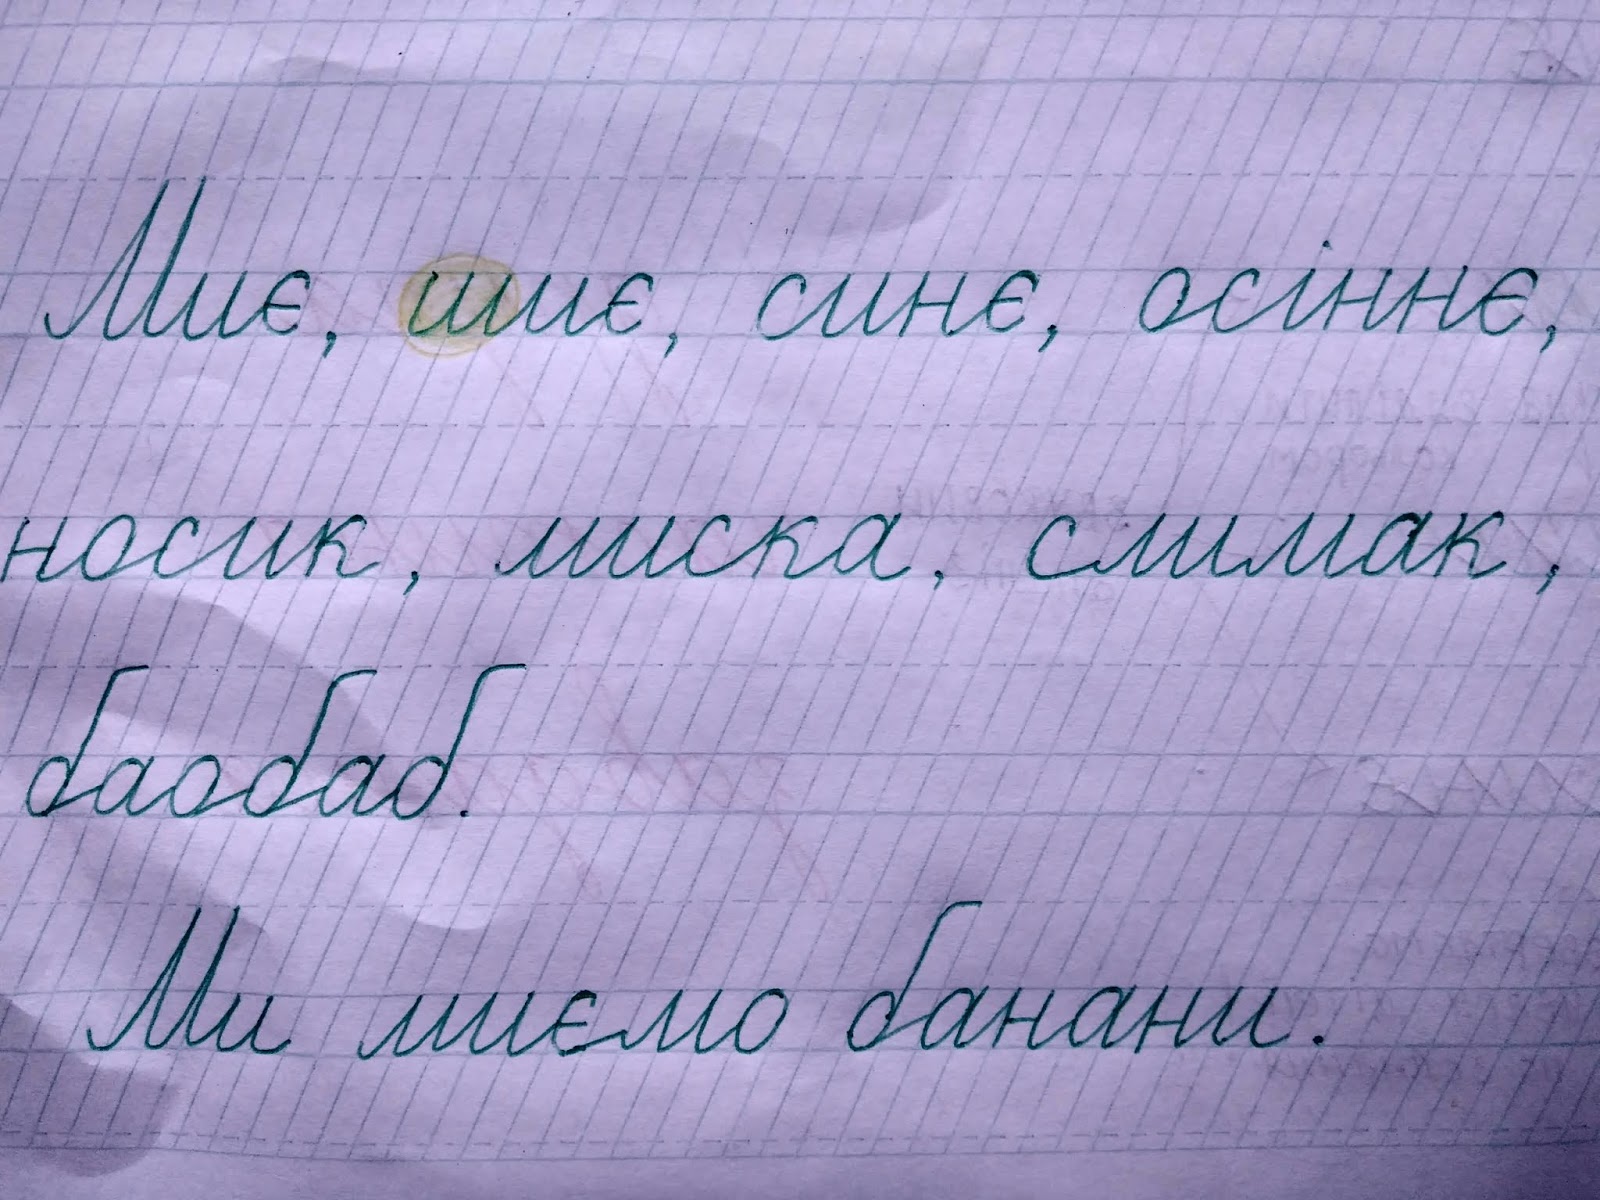 Миє, шиє, синє, осіннє,
носик, миска, слимак,
баобаб.
Ми миємо банани.